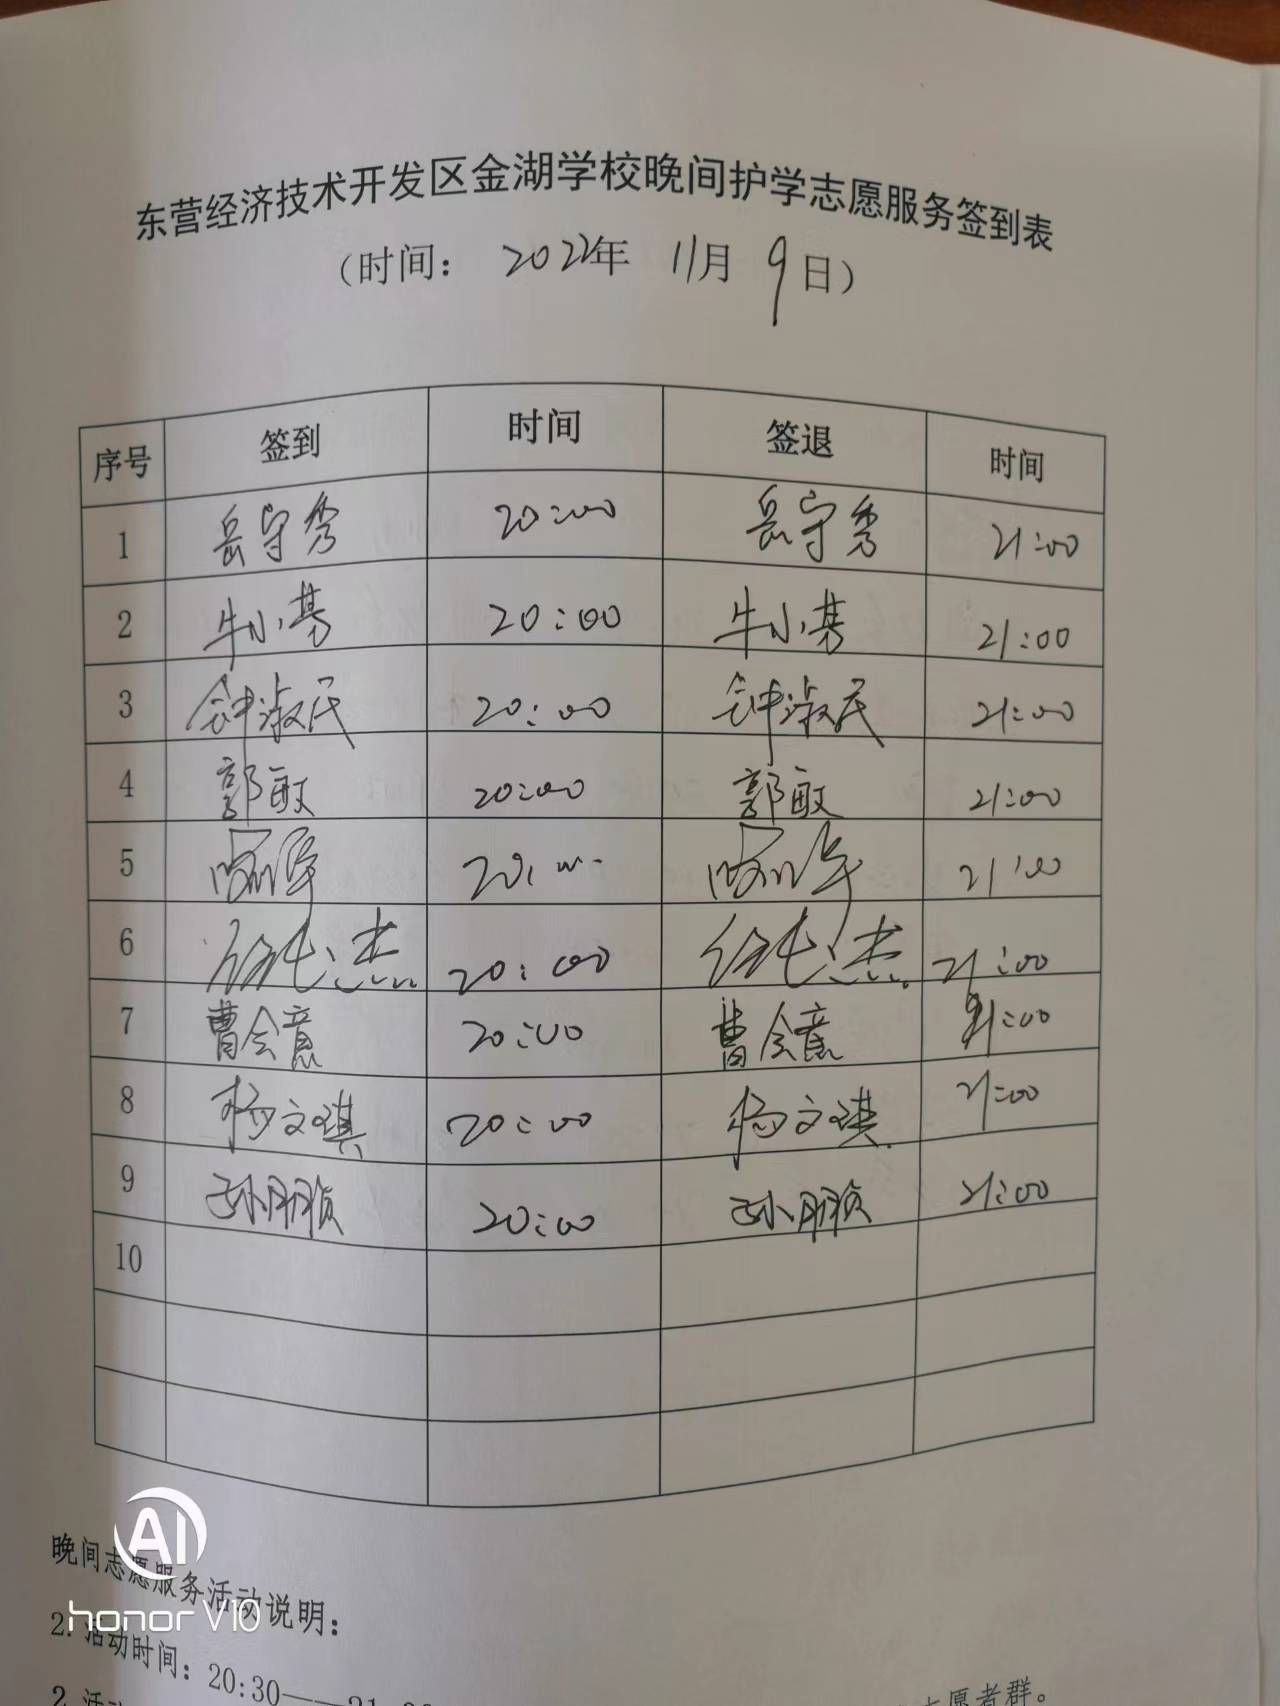 东营经济技术开发区金湖学校晚间护学志愿服务签到表
（时间： 2022年 11月 9日）
序号 签到 时间 签退 时间
1 岳守秀 20:00 岳守秀 21:00
2 牛小艿 20:00 牛小艿 21:00
3 钟淑民 20:00 钟淑民 21:00
4 郭敏 20:00 郭敏 21:00
5 20:00 21:00
6 徐屯杰 20:00 徐屯杰 21:00
7 曹会意 20:00 曹会意 21:00
8 杨文琪 20:00 杨文琪 21:00
9 孙朋祯 20:00 孙朋祯 21:00
10
晚间志愿服务活动说明：
2.活动时间：20:30——21
2.活 志愿者群。
AI
honor V10